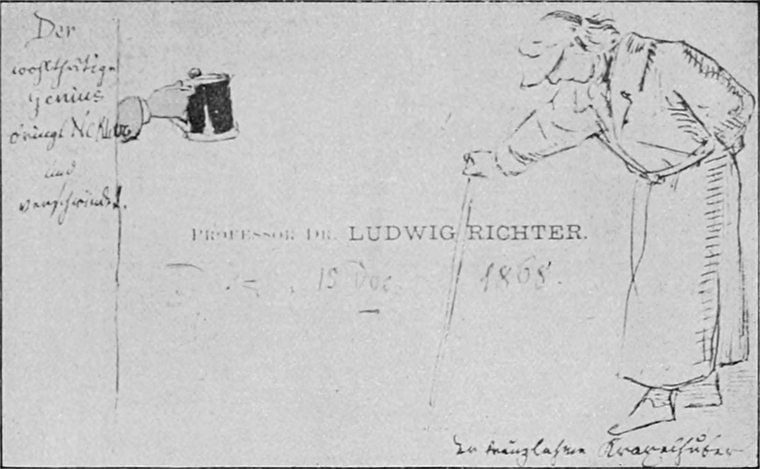 Der
wohlthätige
Genius
bringt Nektar
und
verschwindet.
PROFESSOR DR. LUDWIG RICHTER.
15 Dec. 1868.
Der kreuzlahme